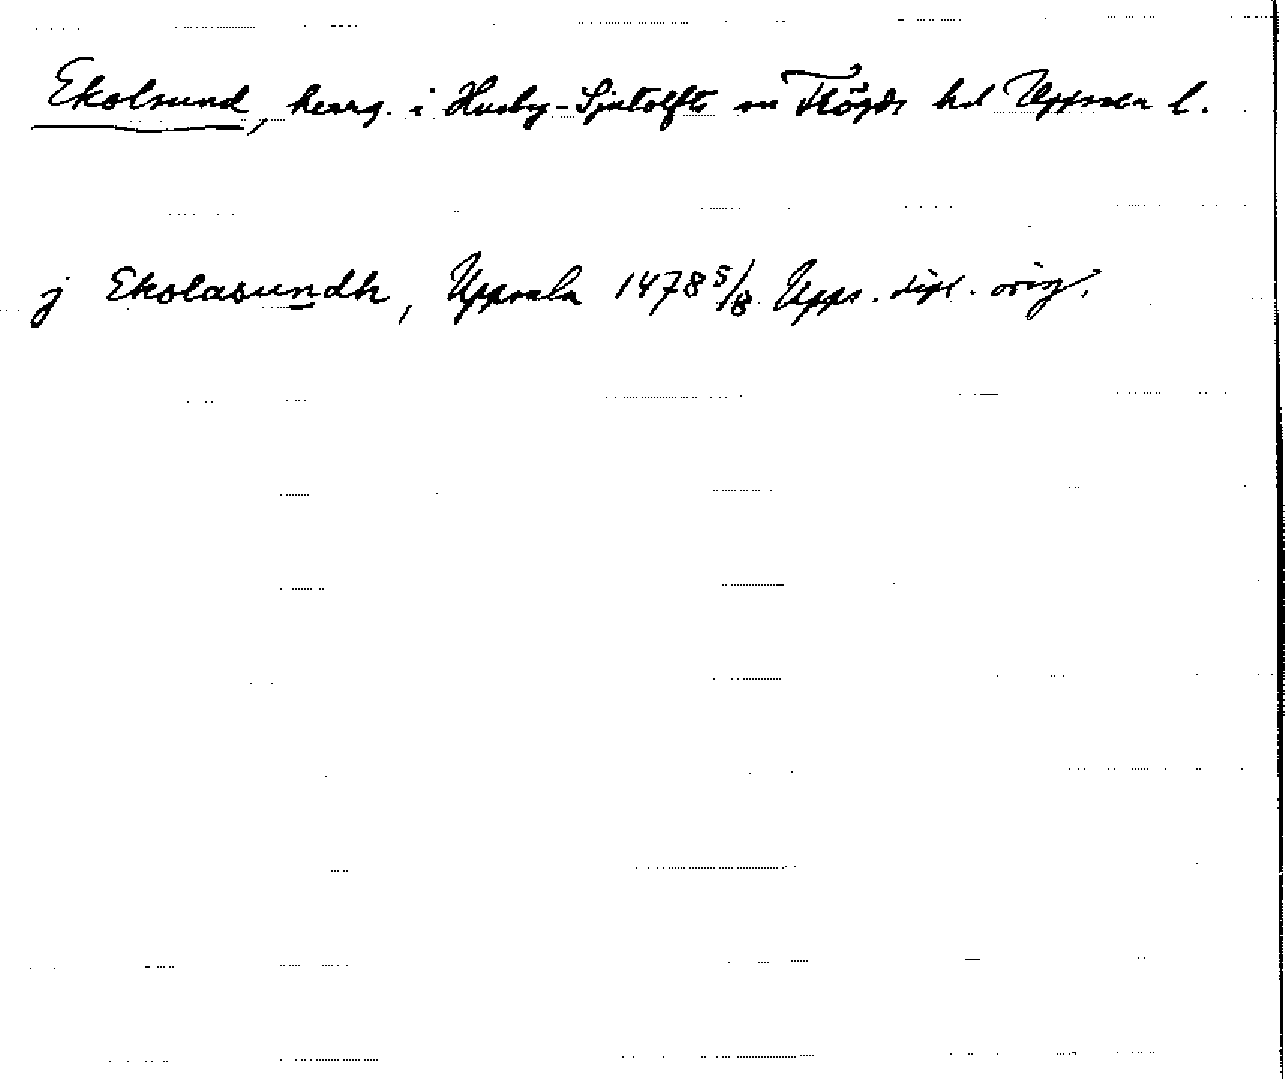 Ekolsund, herrg. i Husby-Sjutolfts sn Trögds hd Uppsala l.
j Ekolasundh, Uppsala 1478 5/8 Upps. dipl. orig.